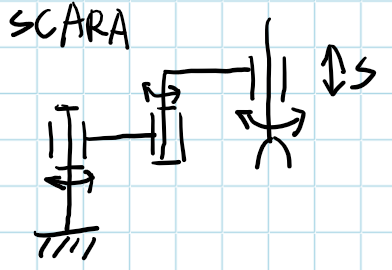 SCARA
S